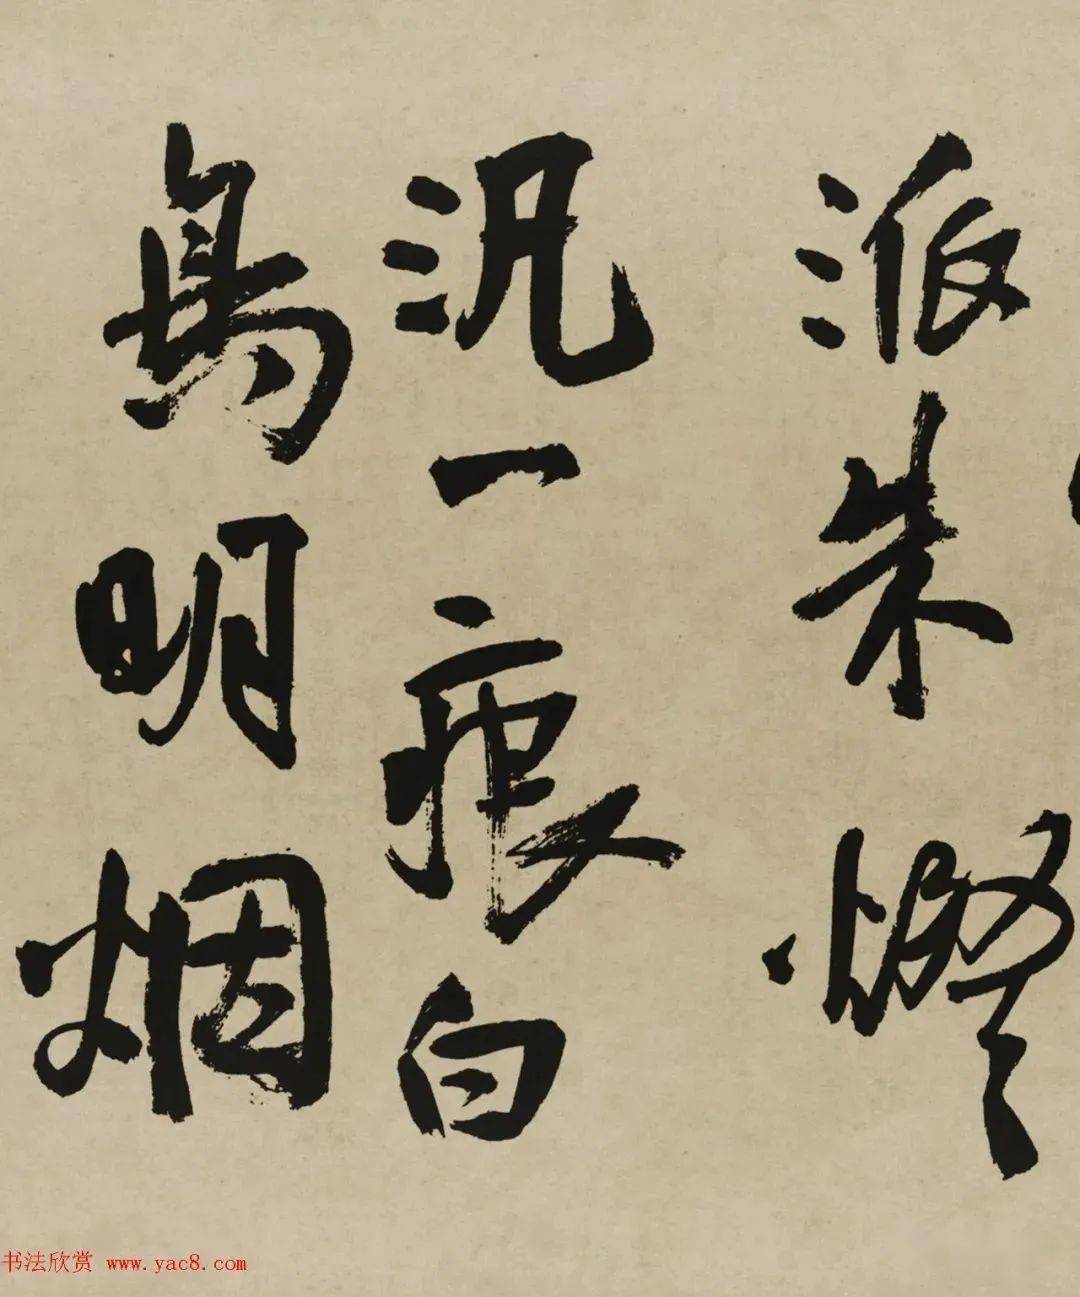 派朱燈
汎一痕白
鳥明烟
书法欣赏 www.yac8.com